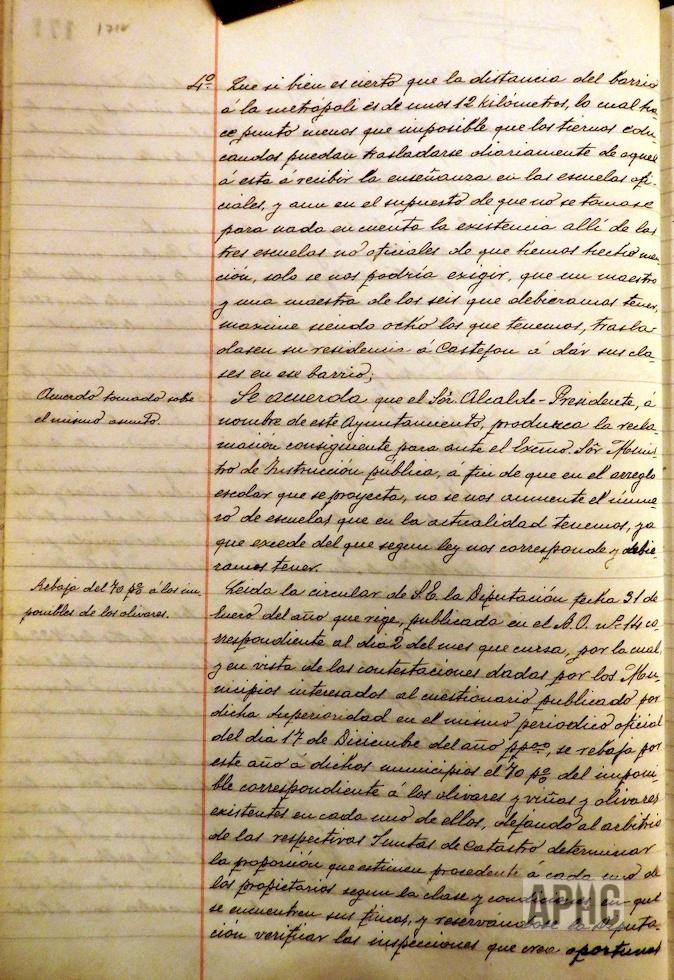 171
4º Que si bien es cierto que la distancia del barrio
á la metrópoli es de unos 12 kilómetros, lo cual ha-
ce punto menos que imposible que los tiernos edu-
candos puedan trasladarse diariamente de aquel
á esta á recibir la enseñanza en las escuelas ofi-
ciales, y aun en el supuesto de que no se tomase
para nada en cuenta la existencia allí de las
tres escuelas no oficiales de que hemos hecho men-
ción, solo se nos podría exigir, que un maestro
y una maestra de los seis que debieramos tener,
maxime siendo ocho los que tenemos, trasla-
dasen su residensia á Castejon á dár sus cla-
ses en ese barrio;
Acuerdo tomado sobre
el mismo asunto.
Se acuerda que el Sór. Alcalde-Presidente, á
nombre de este Ayuntamiento, produzca la recla-
mación consiguiente para ante el Excmo. Sór Minis-
tro de Instrucción pública, a fin de que en el arreglo
escolar que se proyecta, no se nos aumente el núme-
ro de escuelas que en la actualidad tenemos, ya
que excede del que segun ley nos corresponde y debie-
ramos tener.
Rebaja del 70 pº á los im-
ponibles de los olivares.
Leida la circular de S.E. la Diputación fecha 31 de
Enero del año que rige, publicada en el B.O. nº 14 co-
rrespondiente al dia 2 del mes que cursa, por la cual,
y en vista de las contestaciones dadas por los Mu-
nicipios interesados al cuestionario publicado por
dicha Superioridad en el mismo periodico oficial
del dia 17 de Diciembre del año ppdo, se rebaja por
este año á dichos municipios el 70 pº del imponi-
ble correspondiente á los olivares y viñas y olivares
existentes en cada uno de ellos, dejando al arbitrio
de las respectivas Juntas de Catastro determinar
la proporción que estimen procedente á cada uno de
los propietarios segun la clase y condiciones en que
se encuentren sus fincas, y reservándose la Diputa-
ción verificar las inspecciones que crea oportunas
APHC